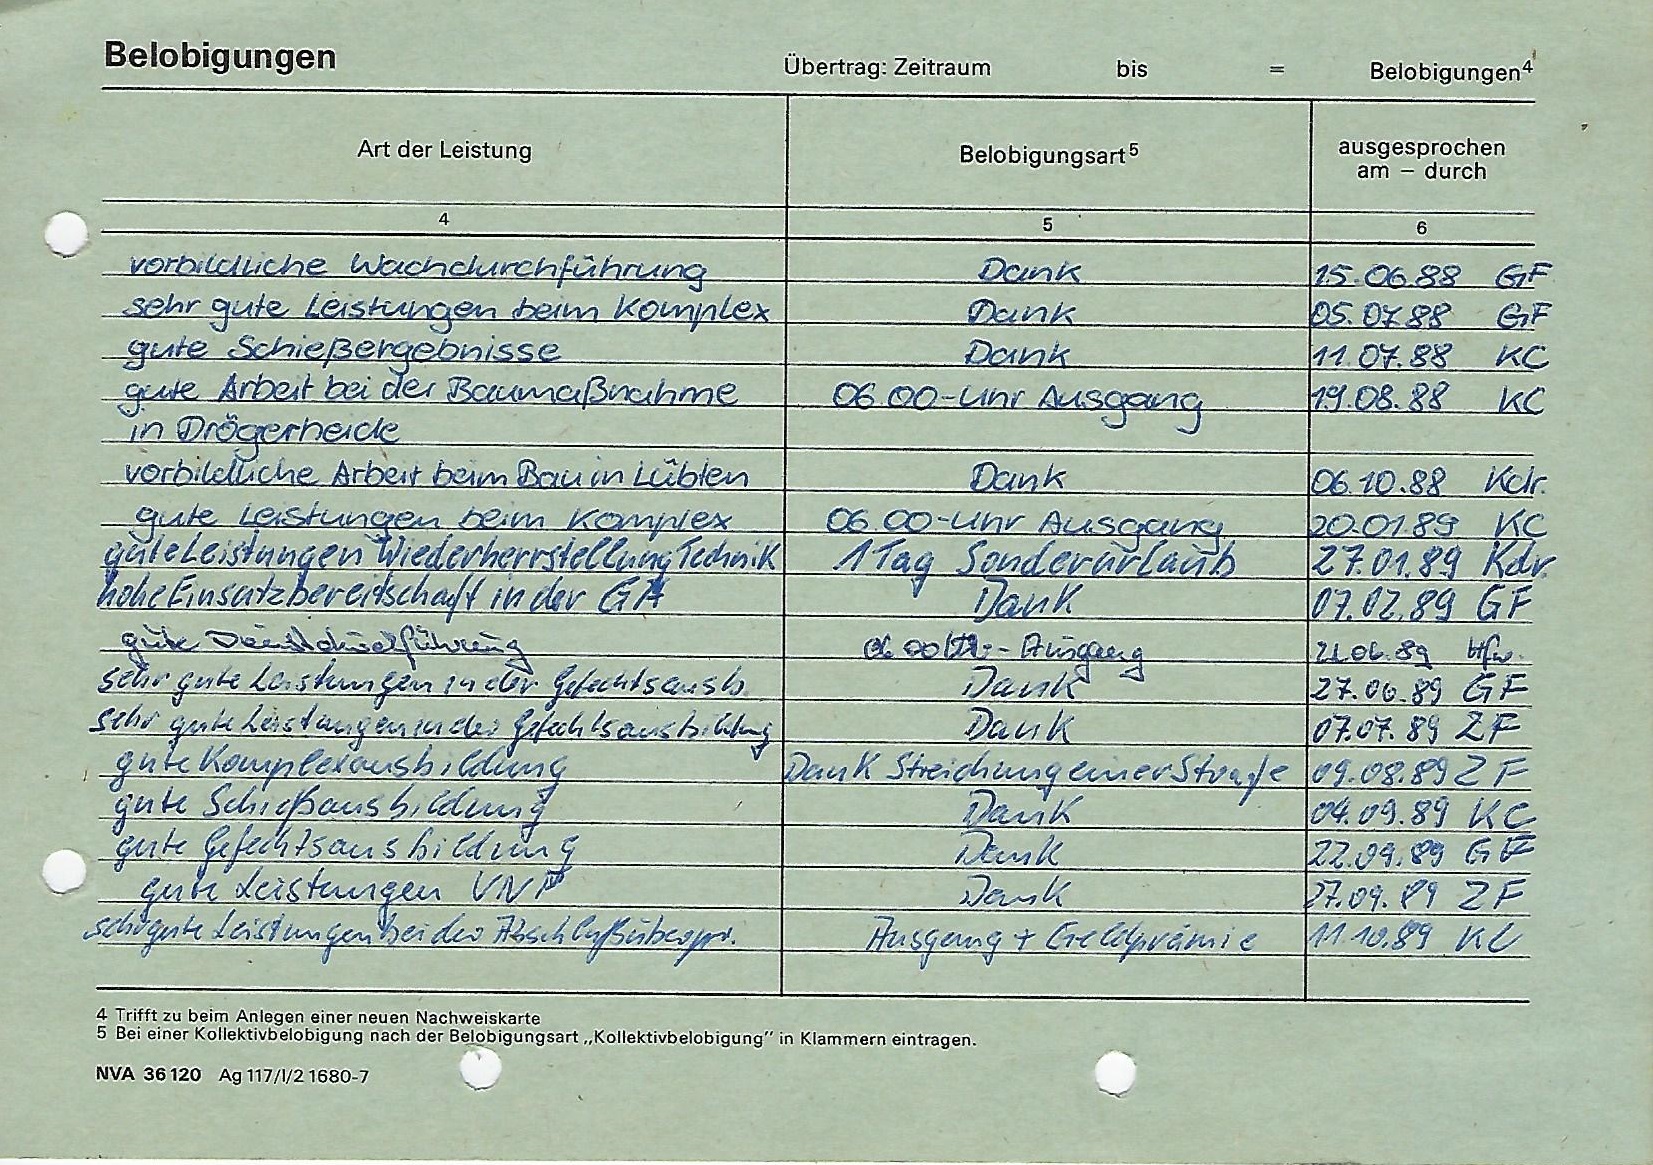 Belobigungen Übertrag: Zeitraum bis = Belobigungen⁴
Art der Leistung Belobigungsart⁵ ausgesprochen
am – durch
4 5 6
vorbildliche Wachdurchführung Dank 15.06.88 GF
sehr gute Leistungen beim Komplex Dank 05.07.88 GF
gute Schießergebnisse Dank 11.07.88 KC
gute Arbeit bei der Baumaßnahme 06.00-Uhr Ausgang 19.08.88 KC
in Drögerheide
vorbildliche Arbeit beim Bau in Lübten Dank 06.10.88 Kdr.
gute Leistungen beim Komplex 06.00-Uhr Ausgang 20.01.89 KC
gute Leistungen Wiederherrstellung Technik 1 Tag Sonderurlaub 27.01.89 Kdr.
hohe Einsatzbereitschaft in der GA Dank 07.02.89 GF
gute Dienstdurchführung 06.00 Uhr - Ausgang 89
sehr gute Leistungen in der Gefechtsausb. Dank 27.06.89 GF
sehr gute Leistungen in der Gefechtsausbildung Dank 07.07.89 ZF
gute Komplexausbildung Dank Streichung einer Strafe 09.08.89 ZF
gute Schießausbildung Dank 04.09.89 KC
gute Gefechtsausbildung Dank 22.09.89 GF
gute Leistungen Dank 27.09.89 ZF
sehr gute Leistungen bei der Abschlußüberpr. Ausgang + Geldprämie 11.10.89 KC
4 Trifft zu beim Anlegen einer neuen Nachweiskarte
5 Bei einer Kollektivbelobigung nach der Belobigungsart „Kollektivbelobigung” in Klammern eintragen.
NVA 36 120 Ag 117/I/2 1680-7